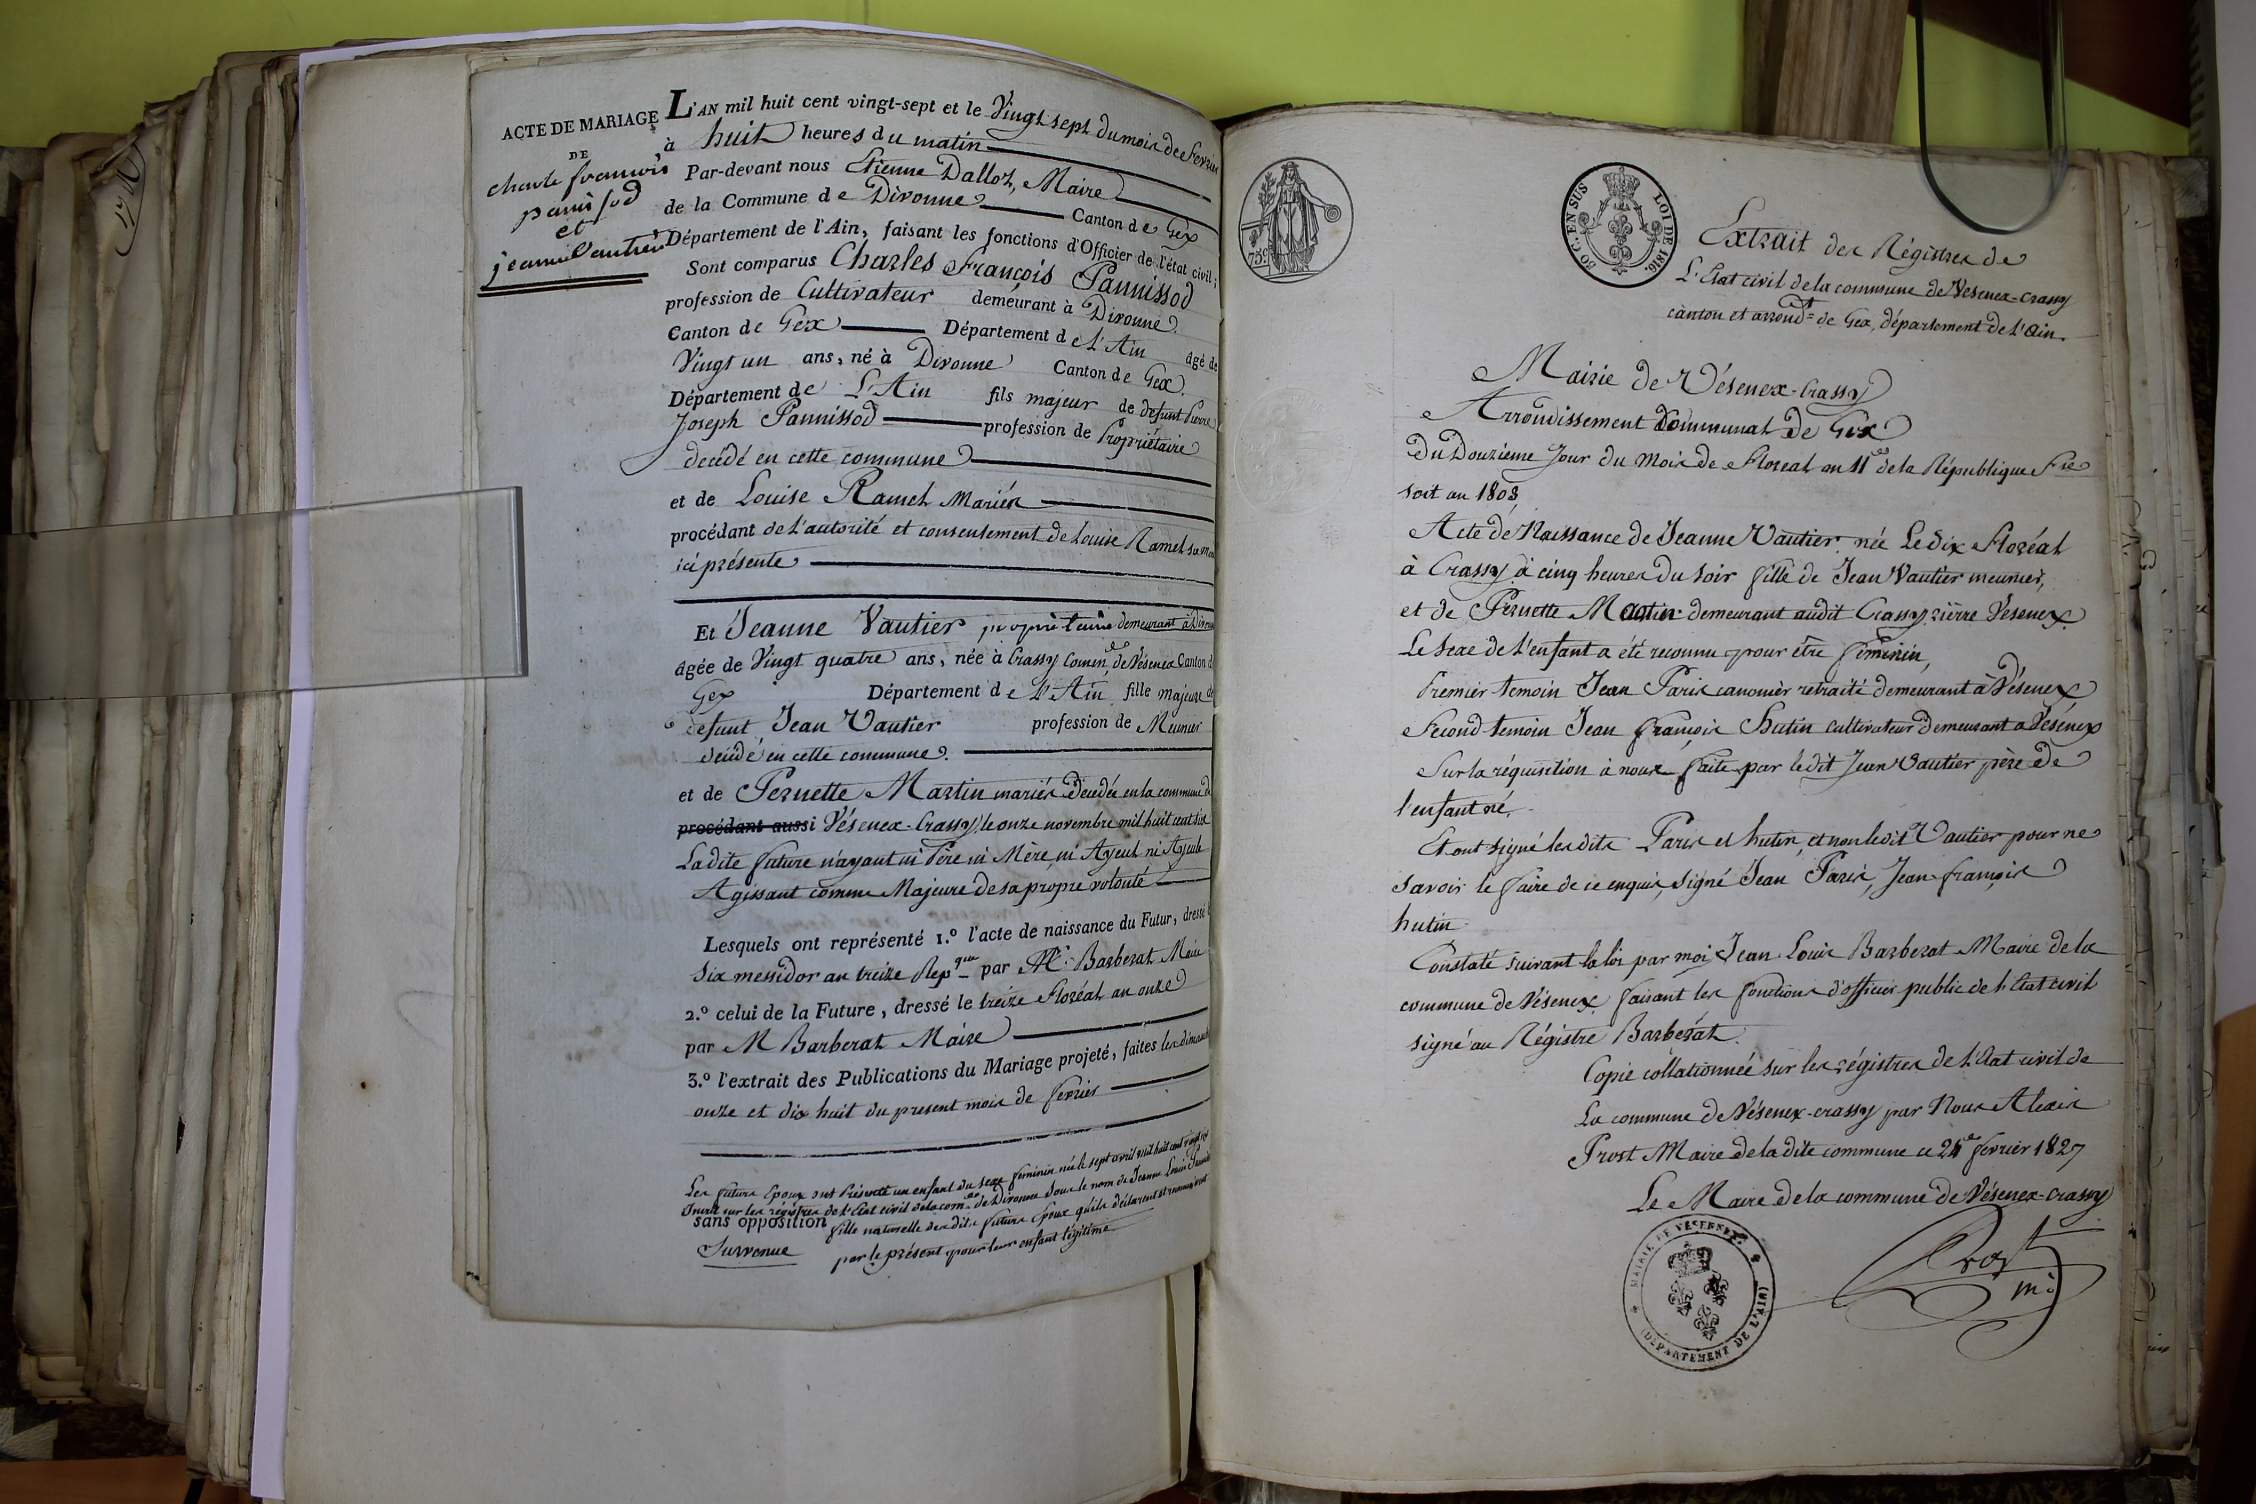 ACTE DE MARIAGE
DE
charle francois
panisod
et
jeanne vautier
L'AN mil huit cent vingt-sept et le Vingt sept du mois de fevrier
à huit heures du matin
Par-devant nous Etienne Dalloz, Maire
de la Commune de Divonne Canton de Gex
Département de l'Ain, faisant les fonctions d'Officier de l'état civil;
Sont comparus Charles François Pannissod
profession de Cultivateur demeurant à Divonne
Canton de Gex Département de L'Ain âgé de
Vingt un ans, né à Divonne Canton de Gex
Département de L'Ain fils majeur de defunt Pierre
Joseph Pannissod profession de Propriétaire
decédé en cette commune
et de Louise Ramel Mariés
procédant de l'autorité et consentement de Louise Ramel sa
ici présente
Et Jeanne Vautier propriétaire demeurant à Divonne
âgée de Vingt quatre ans, née à Crassy de Vésenex Canton de
Gex Département de L'Ain fille majeure de
defunt Jean Vautier profession de Meunier
décédé en cette commune.
et de Pernette Martin mariés décedée en la commune de
procédant aussi Vésenex-Crassy, le onze novembre mil huit cent six
La dite future n'ayant ni Père ni Mère, ni Ayeul ni Ayeule
Agissant comme Majeure de sa propre volonté
Lesquels ont représenté 1.º l'acte de naissance du Futur, dressé
six messidor an treize Rep.que par Mr. Barberat Maire
2.º celui de la Future, dressé le treize Floréal an onze
par M Barberat Maire
3.º l'extrait des Publications du Mariage projeté, faites les dimanches
onze et dix huit du present mois de fevrier
Les futurs Epoux ont Présenté un enfant du sexe feminin né le sept avril mil huit cent vingt
Inscrit sur les régistres de l'Etat civil de la com.ne de Divonne sous le nom de Jeanne Louise
sans opposition fille naturelle desdits futurs Epoux qu'ils déclarent et reconnaissent
Survenue par le présent pour leur enfant légitime
75c
50 C. EN SUS
LOI DE 1816.
Extrait des Régistres de
L'Etat civil de la commune de Vesenex-crassy
canton et arrond.t de Gex, département de L'Ain.
Mairie de Vésenex-Crassy
Arrondissement Communal de Gex
Du Douzième Jour du Mois de Floreal an 11 de la République Fse
soit an 1803
Acte de Naissance de Jeanne Vautier, née Le dix Floréal
à Crassy à cinq heures du soir fille de Jean Vautier meunier,
et de Pernette Martin demeurant audit Crassy rière Vesenex
Le sexe de l'enfant a été reconnu pour être féminin,
Premier temoin Jean Paris canonier retraité demeurant à Vésenex
Second temoin Jean françois Hutin cultivateur demeurant a Vésénex
Sur la réquisition à nous faite par ledit Jean Vautier père de
l'enfant né,
Et ont signé lesdits Paris et hutin, et non ledit Vautier pour ne
savoir le faire de ce enquis, signé Jean Paris, Jean françois
hutin.
Constaté suivant la loi par moi Jean Louis Barberat Maire de la
commune de Vésenex faisant les fonctions d'officier public de l'Etat civil
signé au Régistre Barberat.
Copie collationnée sur les régistres de l'Etat civil de
La commune de Vésenex-crassy par Nous Alexis
Prost Maire de la dite commune ce 24e fevrier 1827
Le Maire de la commune de Vésenex-crassy
Prost
m.
MAIRIE DE VÉSENNEX.
(DÉPARTEMENT DE L'AIN)